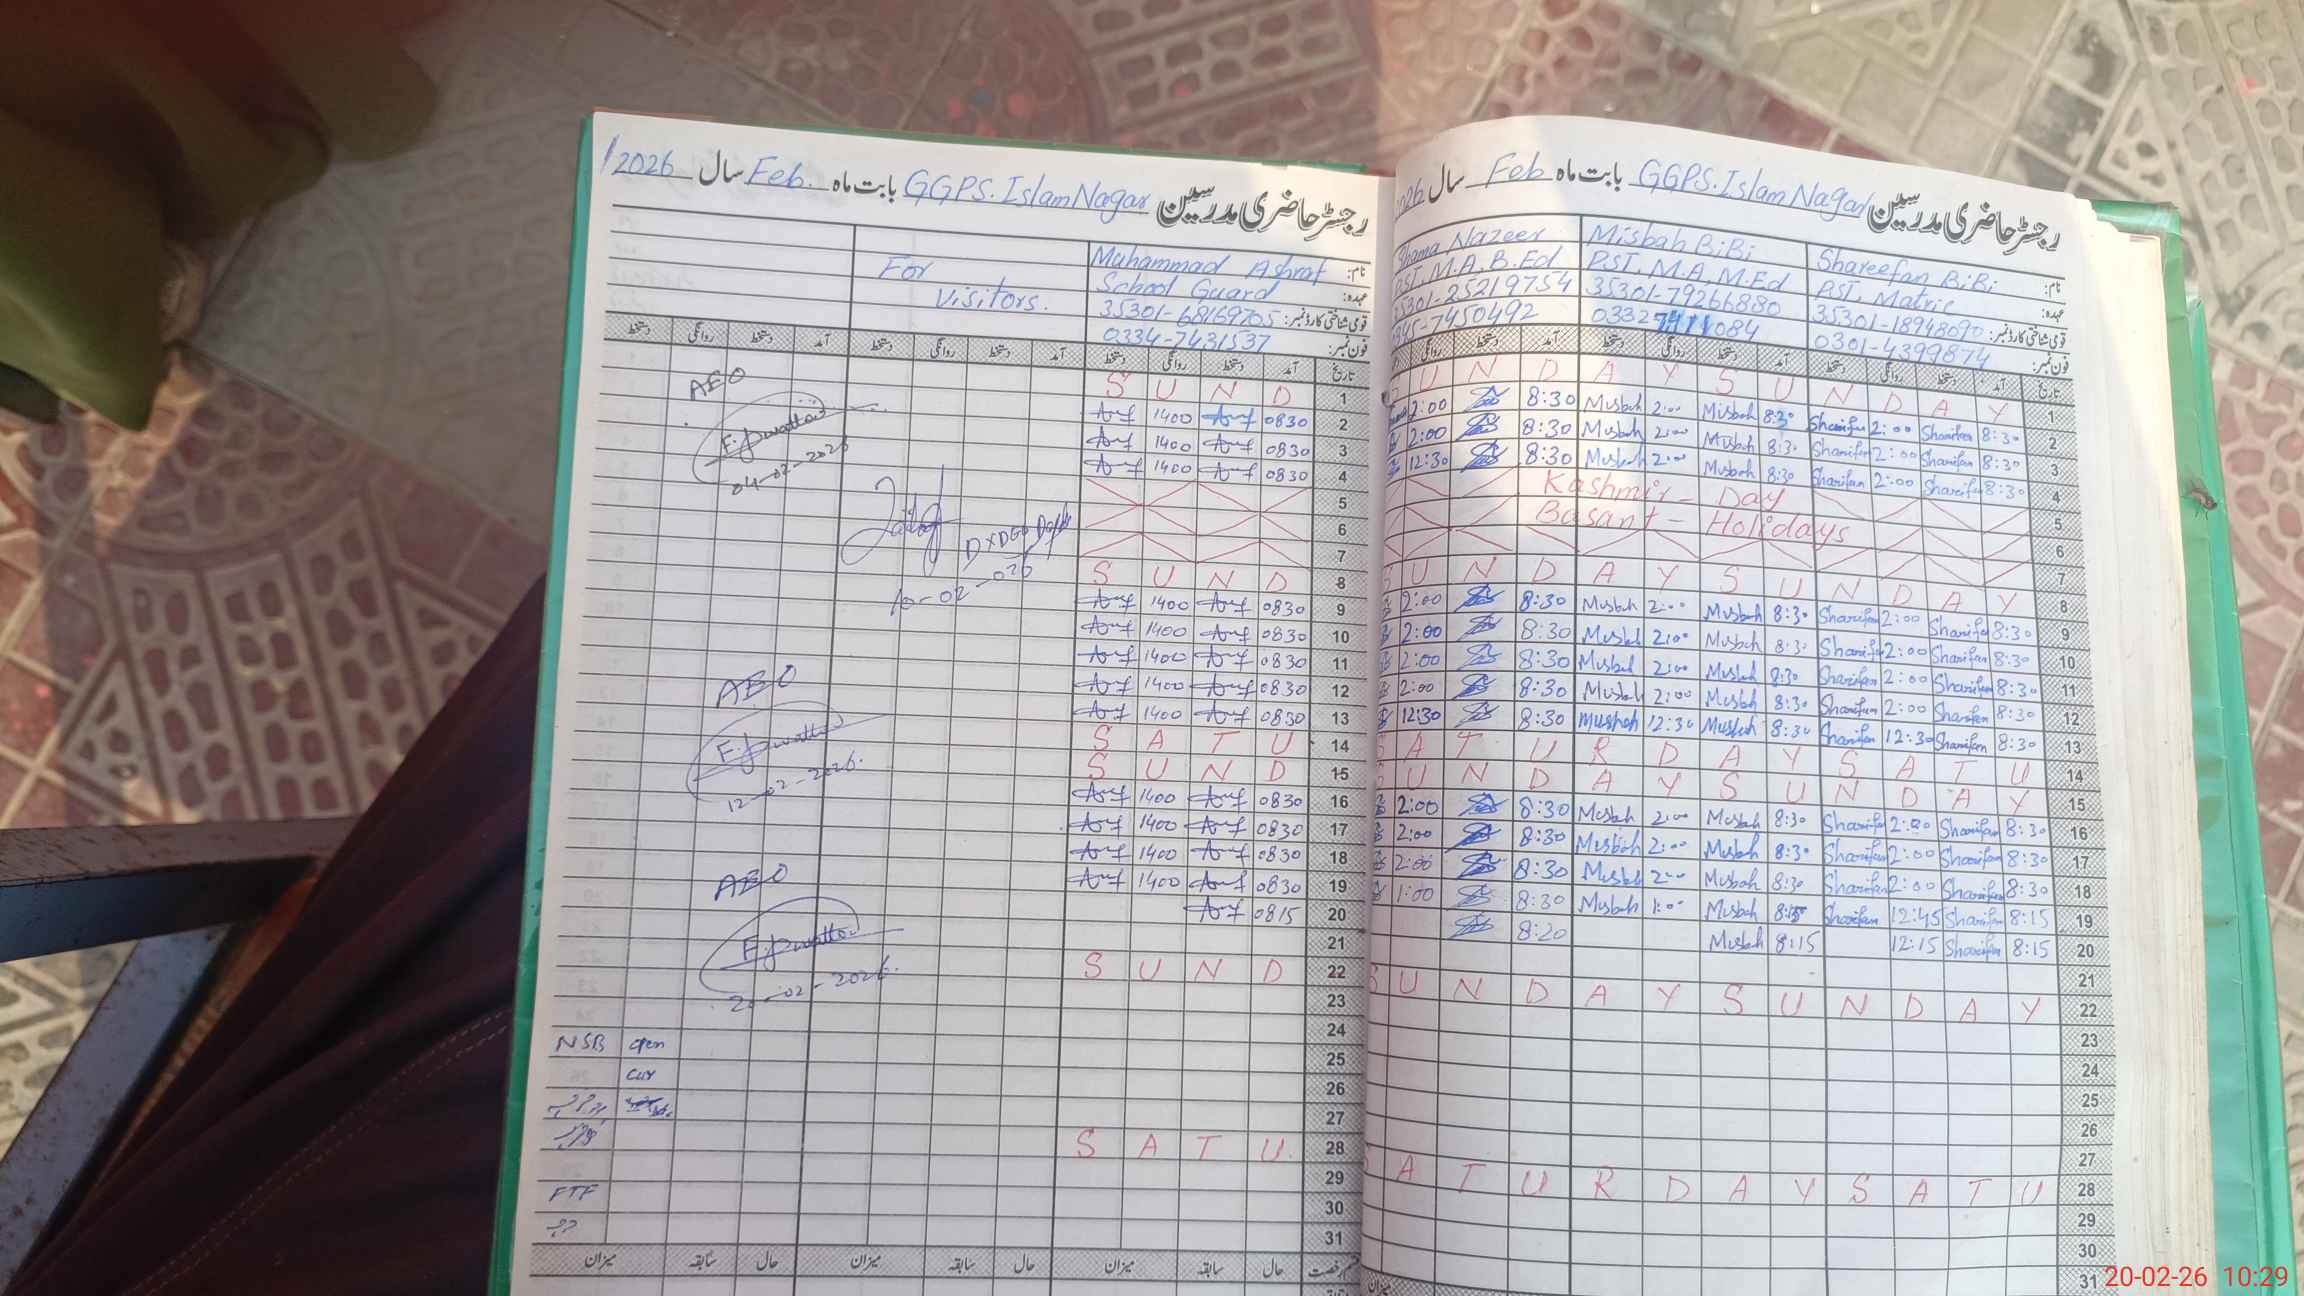 /2026 سال Feb. بابت ماہ GGPS. Islam Nagar رجسٹر حاضری مدرسین
For Visitors.
نام: Muhammad Ashraf
عہدہ: School Guard
قومی شناختی کارڈ نمبر: 35301-68169705
فون نمبر: 0334-7431537
دستخط روانگی دستخط آمد دستخط روانگی دستخط آمد دستخط روانگی دستخط آمد تاریخ
S U N D 1
1400 0830 2
1400 0830 3
1400 0830 4
5
6
7
S U N D 8
1400 0830 9
1400 0830 10
1400 0830 11
1400 0830 12
1400 0830 13
S A T U 14
S U N D 15
1400 0830 16
1400 0830 17
1400 0830 18
1400 0830 19
0815 20
21
S U N D 22
23
24
25
26
27
S A T U 28
29
30
31
AEO
04-02-2026
10-02-026
AEO
12-02-2026.
AEO
20-02-2026.
NSB open
FTF
میزان سابقہ حال میزان سابقہ حال میزان سابقہ حال
2026 سال Feb بابت ماہ GGPS. Islam Nagar رجسٹر حاضری مدرسین
Shama Nazeer Misbah BiBi Shareefan BiBi نام:
PST, M.A, B.Ed PST, M.A, M.Ed PST, Matric عہدہ:
35301-25219754 35301-79266880 35301-18948090 قومی شناختی کارڈ نمبر:
0345-7450492 0301-4399874 فون نمبر:
روانگی دستخط آمد دستخط روانگی دستخط آمد دستخط روانگی دستخط آمد تاریخ
S U N D A Y S U N D A Y 1
2:00 8:30 Musbah 2:00 Misbah 8:30 Sharifan 2:00 Sharifan 8:30 2
2:00 8:30 Musbah 2:00 Musbah 8:30 Sharifan 2:00 Sharifan 8:30 3
12:30 8:30 Musbah 2:00 Musbah 8:30 Sharifan 2:00 Sharifan 8:30 4
Kashmir - Day 5
Basant - Holidays 6
7
S U N D A Y S U N D A Y 8
2:00 8:30 Musbah 2:00 Musbah 8:30 Sharifan 2:00 Sharifan 8:30 9
2:00 8:30 Musbah 2:00 Musbah 8:30 Sharifan 2:00 Sharifan 8:30 10
2:00 8:30 Musbah 2:00 Musbah 8:30 Sharifan 2:00 Sharifan 8:30 11
2:00 8:30 Musbah 2:00 Musbah 8:30 Sharifan 2:00 Sharifan 8:30 12
12:30 8:30 Musbah 12:30 Musbah 8:30 Sharifan 12:30 Sharifan 8:30 13
S A T U R D A Y S A T U 14
S U N D A Y S U N D A Y 15
2:00 8:30 Musbah 2:00 Musbah 8:30 Sharifan 2:00 Sharifan 8:30 16
2:00 8:30 Musbah 2:00 Musbah 8:30 Sharifan 2:00 Sharifan 8:30 17
2:00 8:30 Musbah 2:00 Musbah 8:30 Sharifan 2:00 Sharifan 8:30 18
1:00 8:30 Musbah 1:00 Musbah 8:15 Sharifan 12:45 Sharifan 8:15 19
8:20 Musbah 8:15 12:15 Sharifan 8:15 20
21
S U N D A Y S U N D A Y 22
23
24
25
26
27
S A T U R D A Y S A T U 28
29
30
31
میزان
20-02-26 10:29